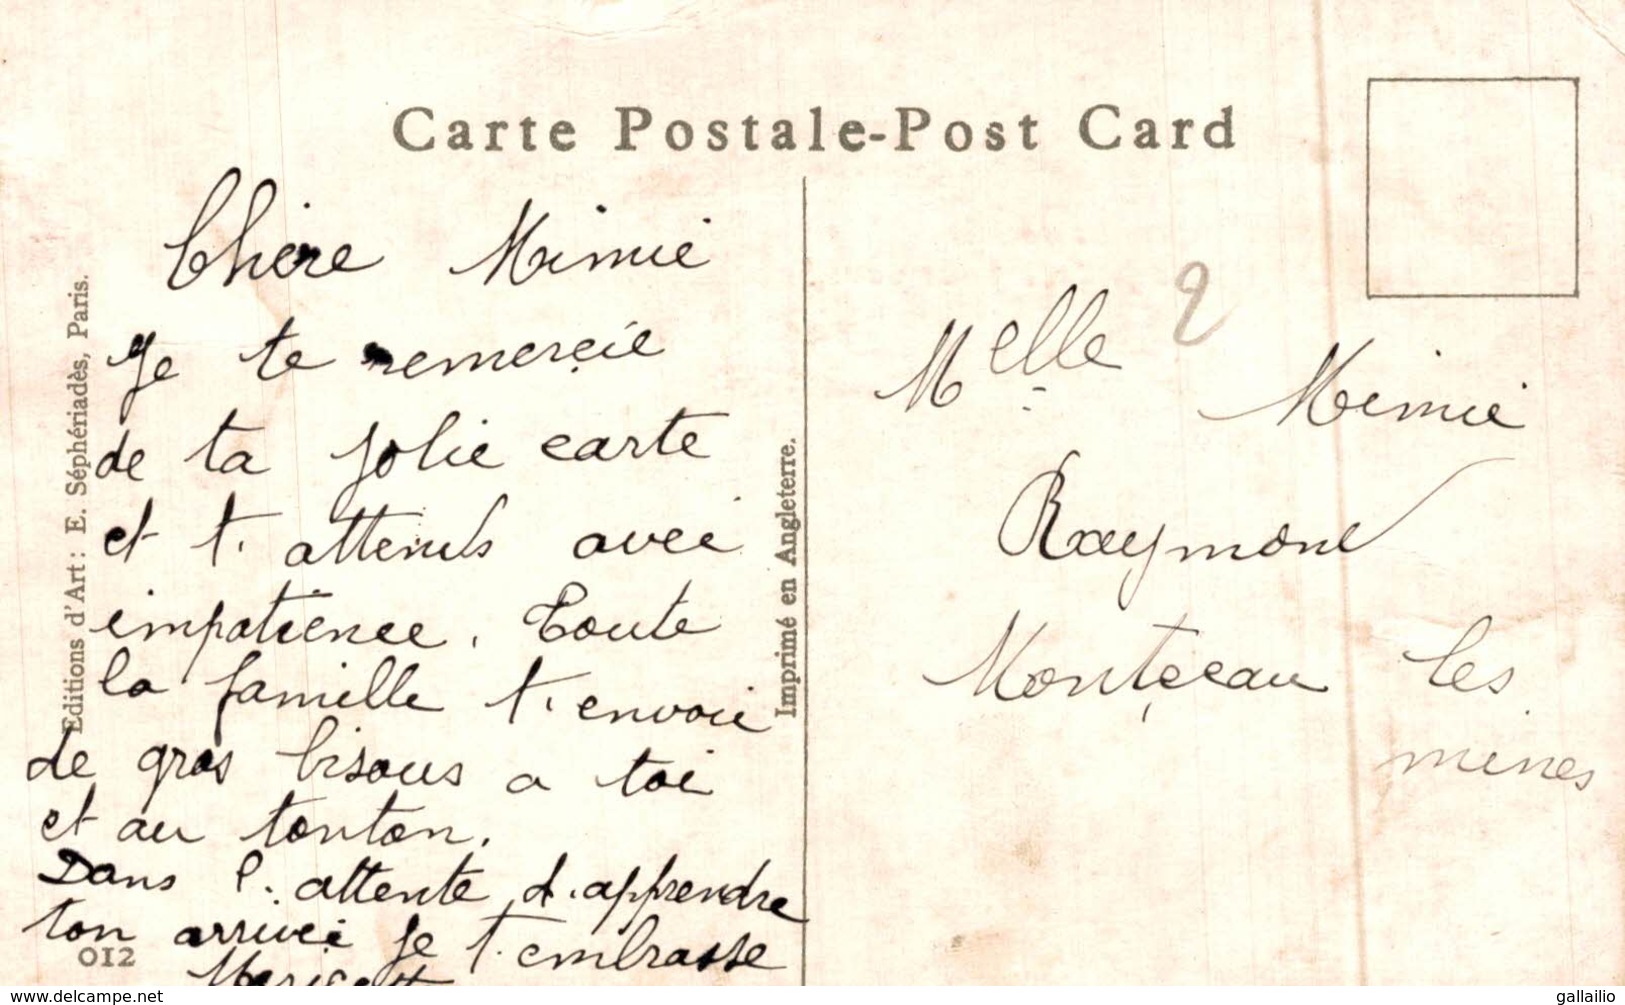 Carte Postale-Post Card
Chère Mimie
Je te remerçie
de ta jolie carte
et t. attends avec
impatience. Toute
la famille t. envoie
de gros bisous a toi
et au tonton.
Dans l. attente d. apprendre
ton arrivée je t. embrasse
Melle Mimie
Raymond
Montçeau les
mines
2
Editions d'Art: E. Séphériadès, Paris.
Imprimé en Angleterre.
012
https://www.delcampe.net
gallailio